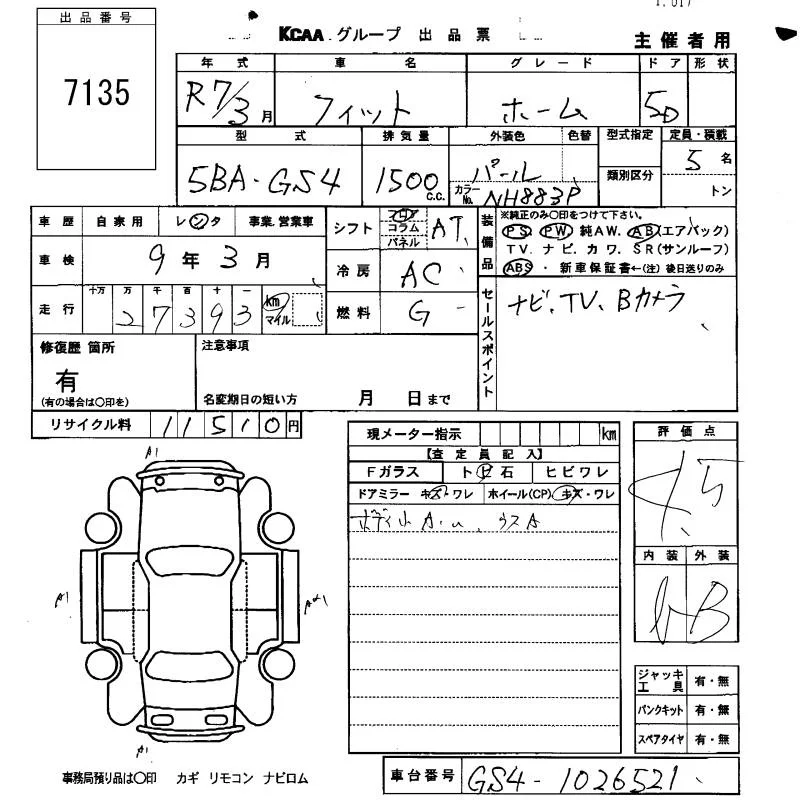 出品番号
7135
KCAA グループ 出品票
主催者用
年式 車名 グレード ドア 形状
R7/3月 フィット ホーム 5D
型式 排気量 外装色 色替 型式指定 定員・積載
5BA-GS4 1500 c.c. パール カラーNo. NH883P 類別区分 5名
トン
車歴 自家用 レンタ 事業.営業車
車検 9年3月
走行 十万 万 千 百 十 一
27393 km マイル
シフト フロア コラム パネル AT
冷房 AC
燃料 G
装備品
※純正のみ○印をつけて下さい。
PS. PW. 純AW. AB(エアバック)
TV. ナビ. カワ. SR(サンルーフ)
ABS ・ 新車保証書←(注) 後日送りのみ
セールスポイント
ナビ、TV、Bカメラ
修復歴 箇所
有
(有の場合は○印を)
注意事項
名変期日の短い方 月 日まで
リサイクル料 11510円
現メーター指示 km
【査定員記入】
Fガラス トビ石 ヒビワレ
ドアミラー キズ・ワレ ホイール(CP) キズ・ワレ
ボディ小A.u、ウスA
評価点
4.5
内装 外装
b B
A1
A1
A1
ジャッキ工具 有・無
パンクキット 有・無
スペアタイヤ 有・無
事務局預り品は○印 カギ リモコン ナビロム
車台番号 GS4-1026521